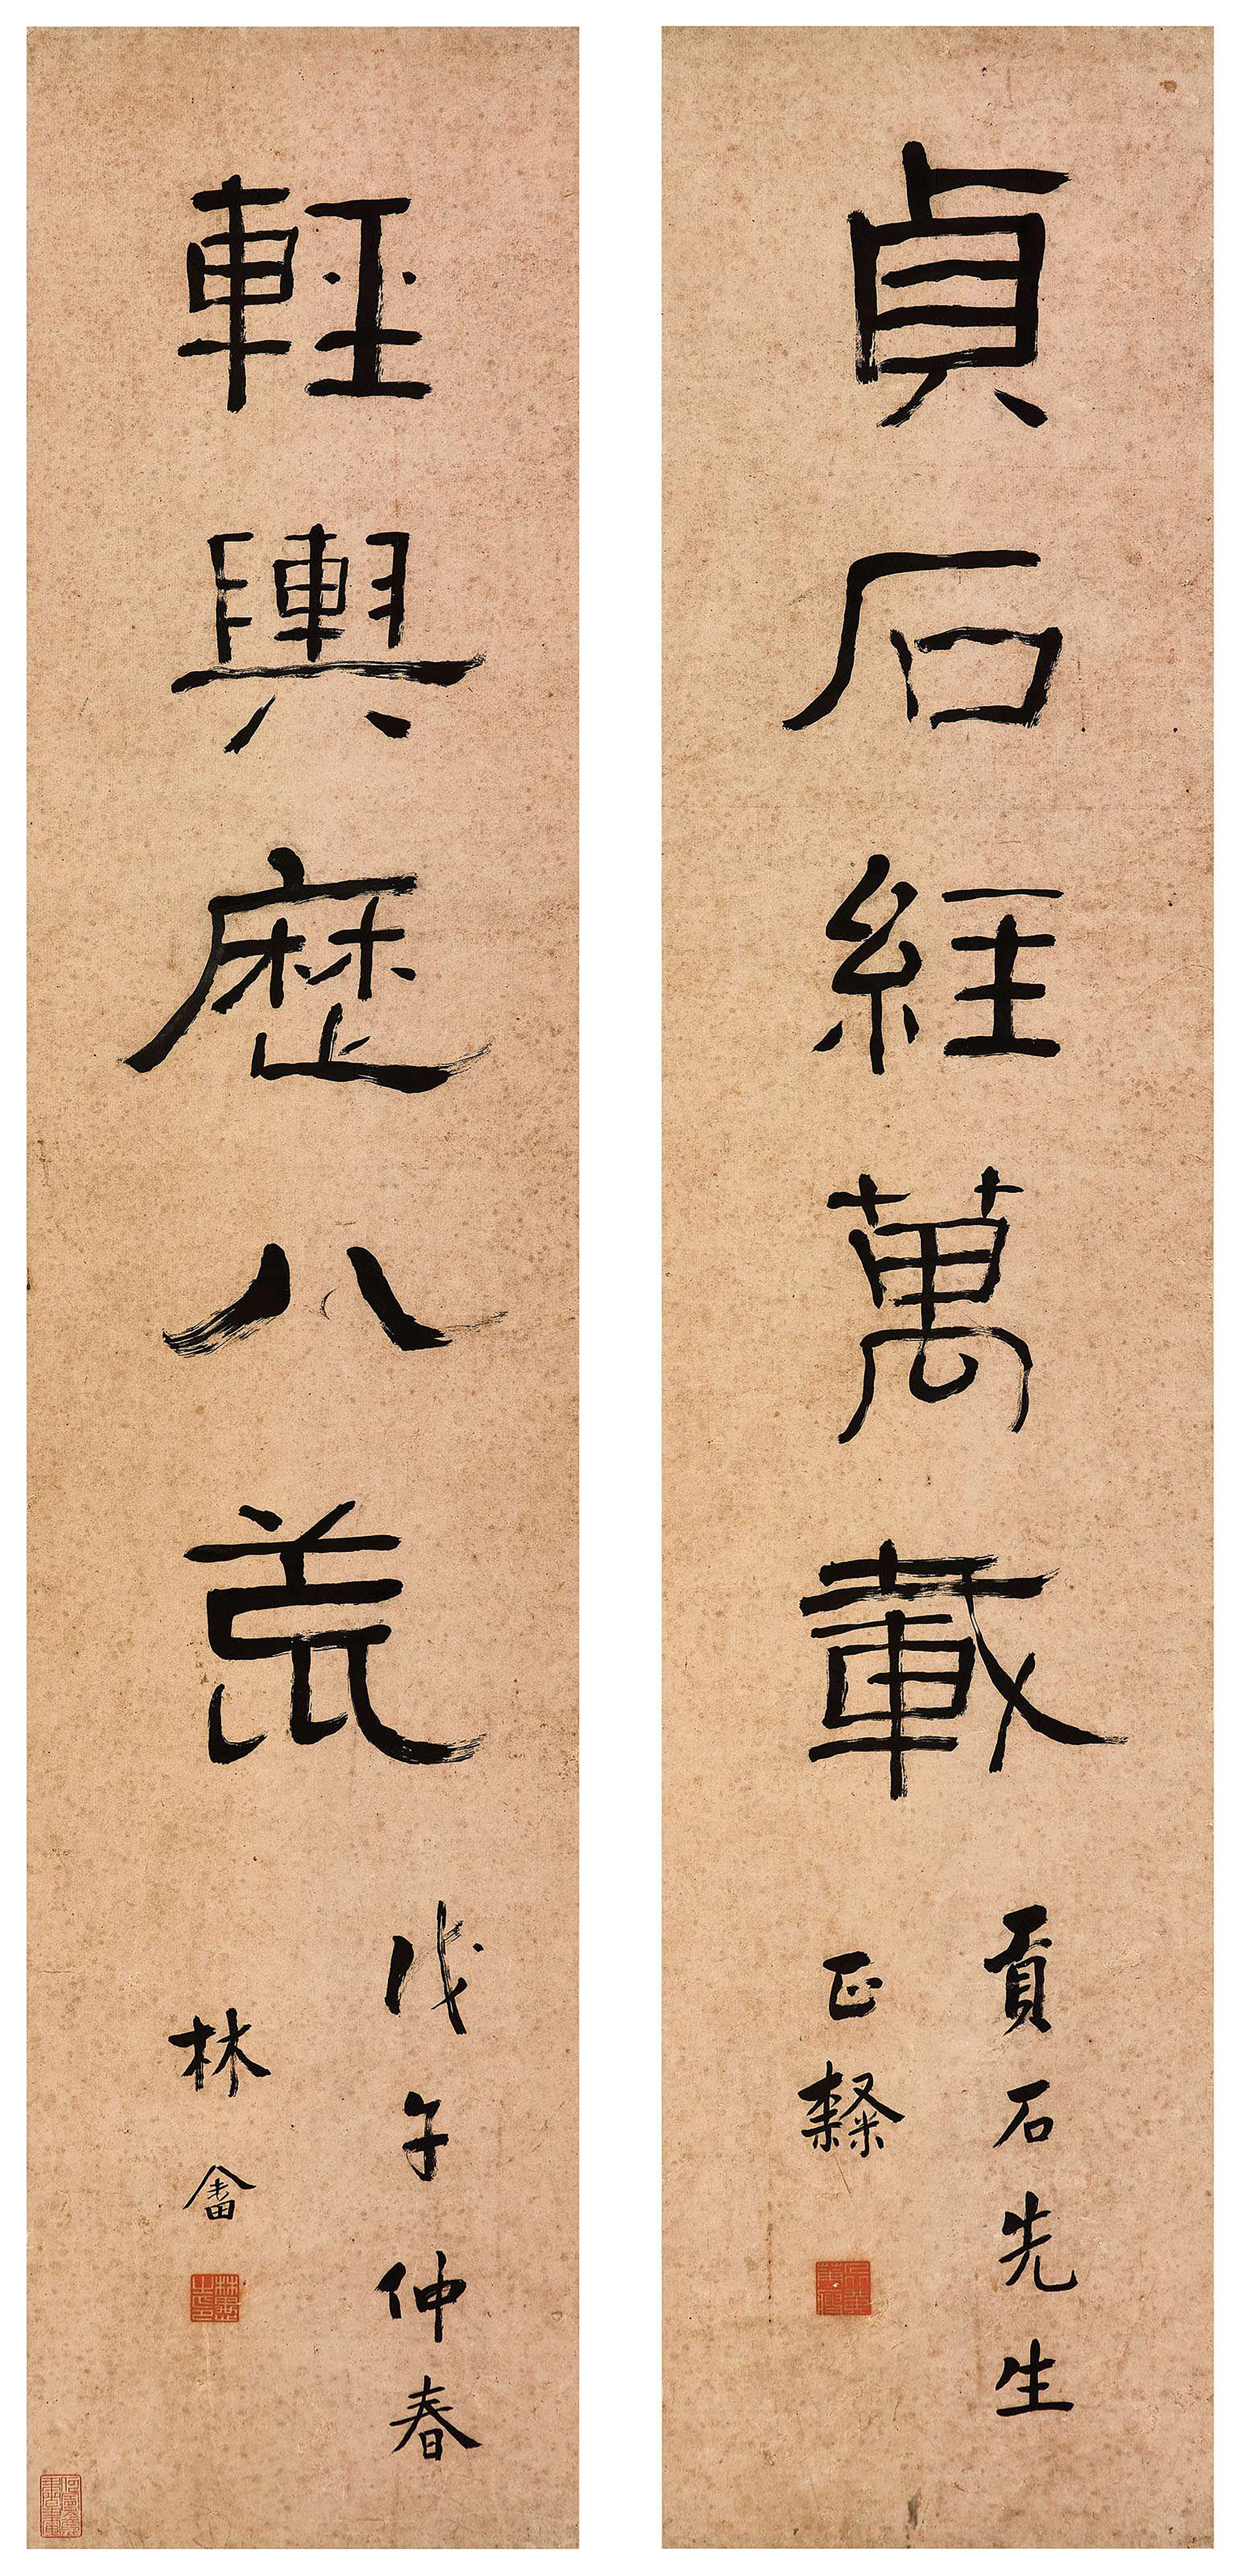 貞石經萬載
貢石先生
正隸
輕輿歷八荒
戊午仲春
林畬